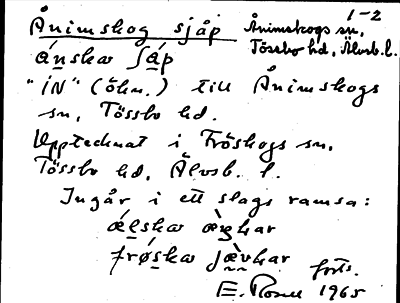 1-2
Ånimskog sjåp
Ånimskogs sn,
Tössbo hd, Älvsb. l.
ánskər ʃáp
"IN" (ökn.) till Ånimskogs
sn, Tössbo hd.
Upptecknat i Fröskogs sn,
Tössbo hd, Älvsb. l.
Ingår i ett slags ramsa:
frǿskər
forts.
E. Rosell 1965